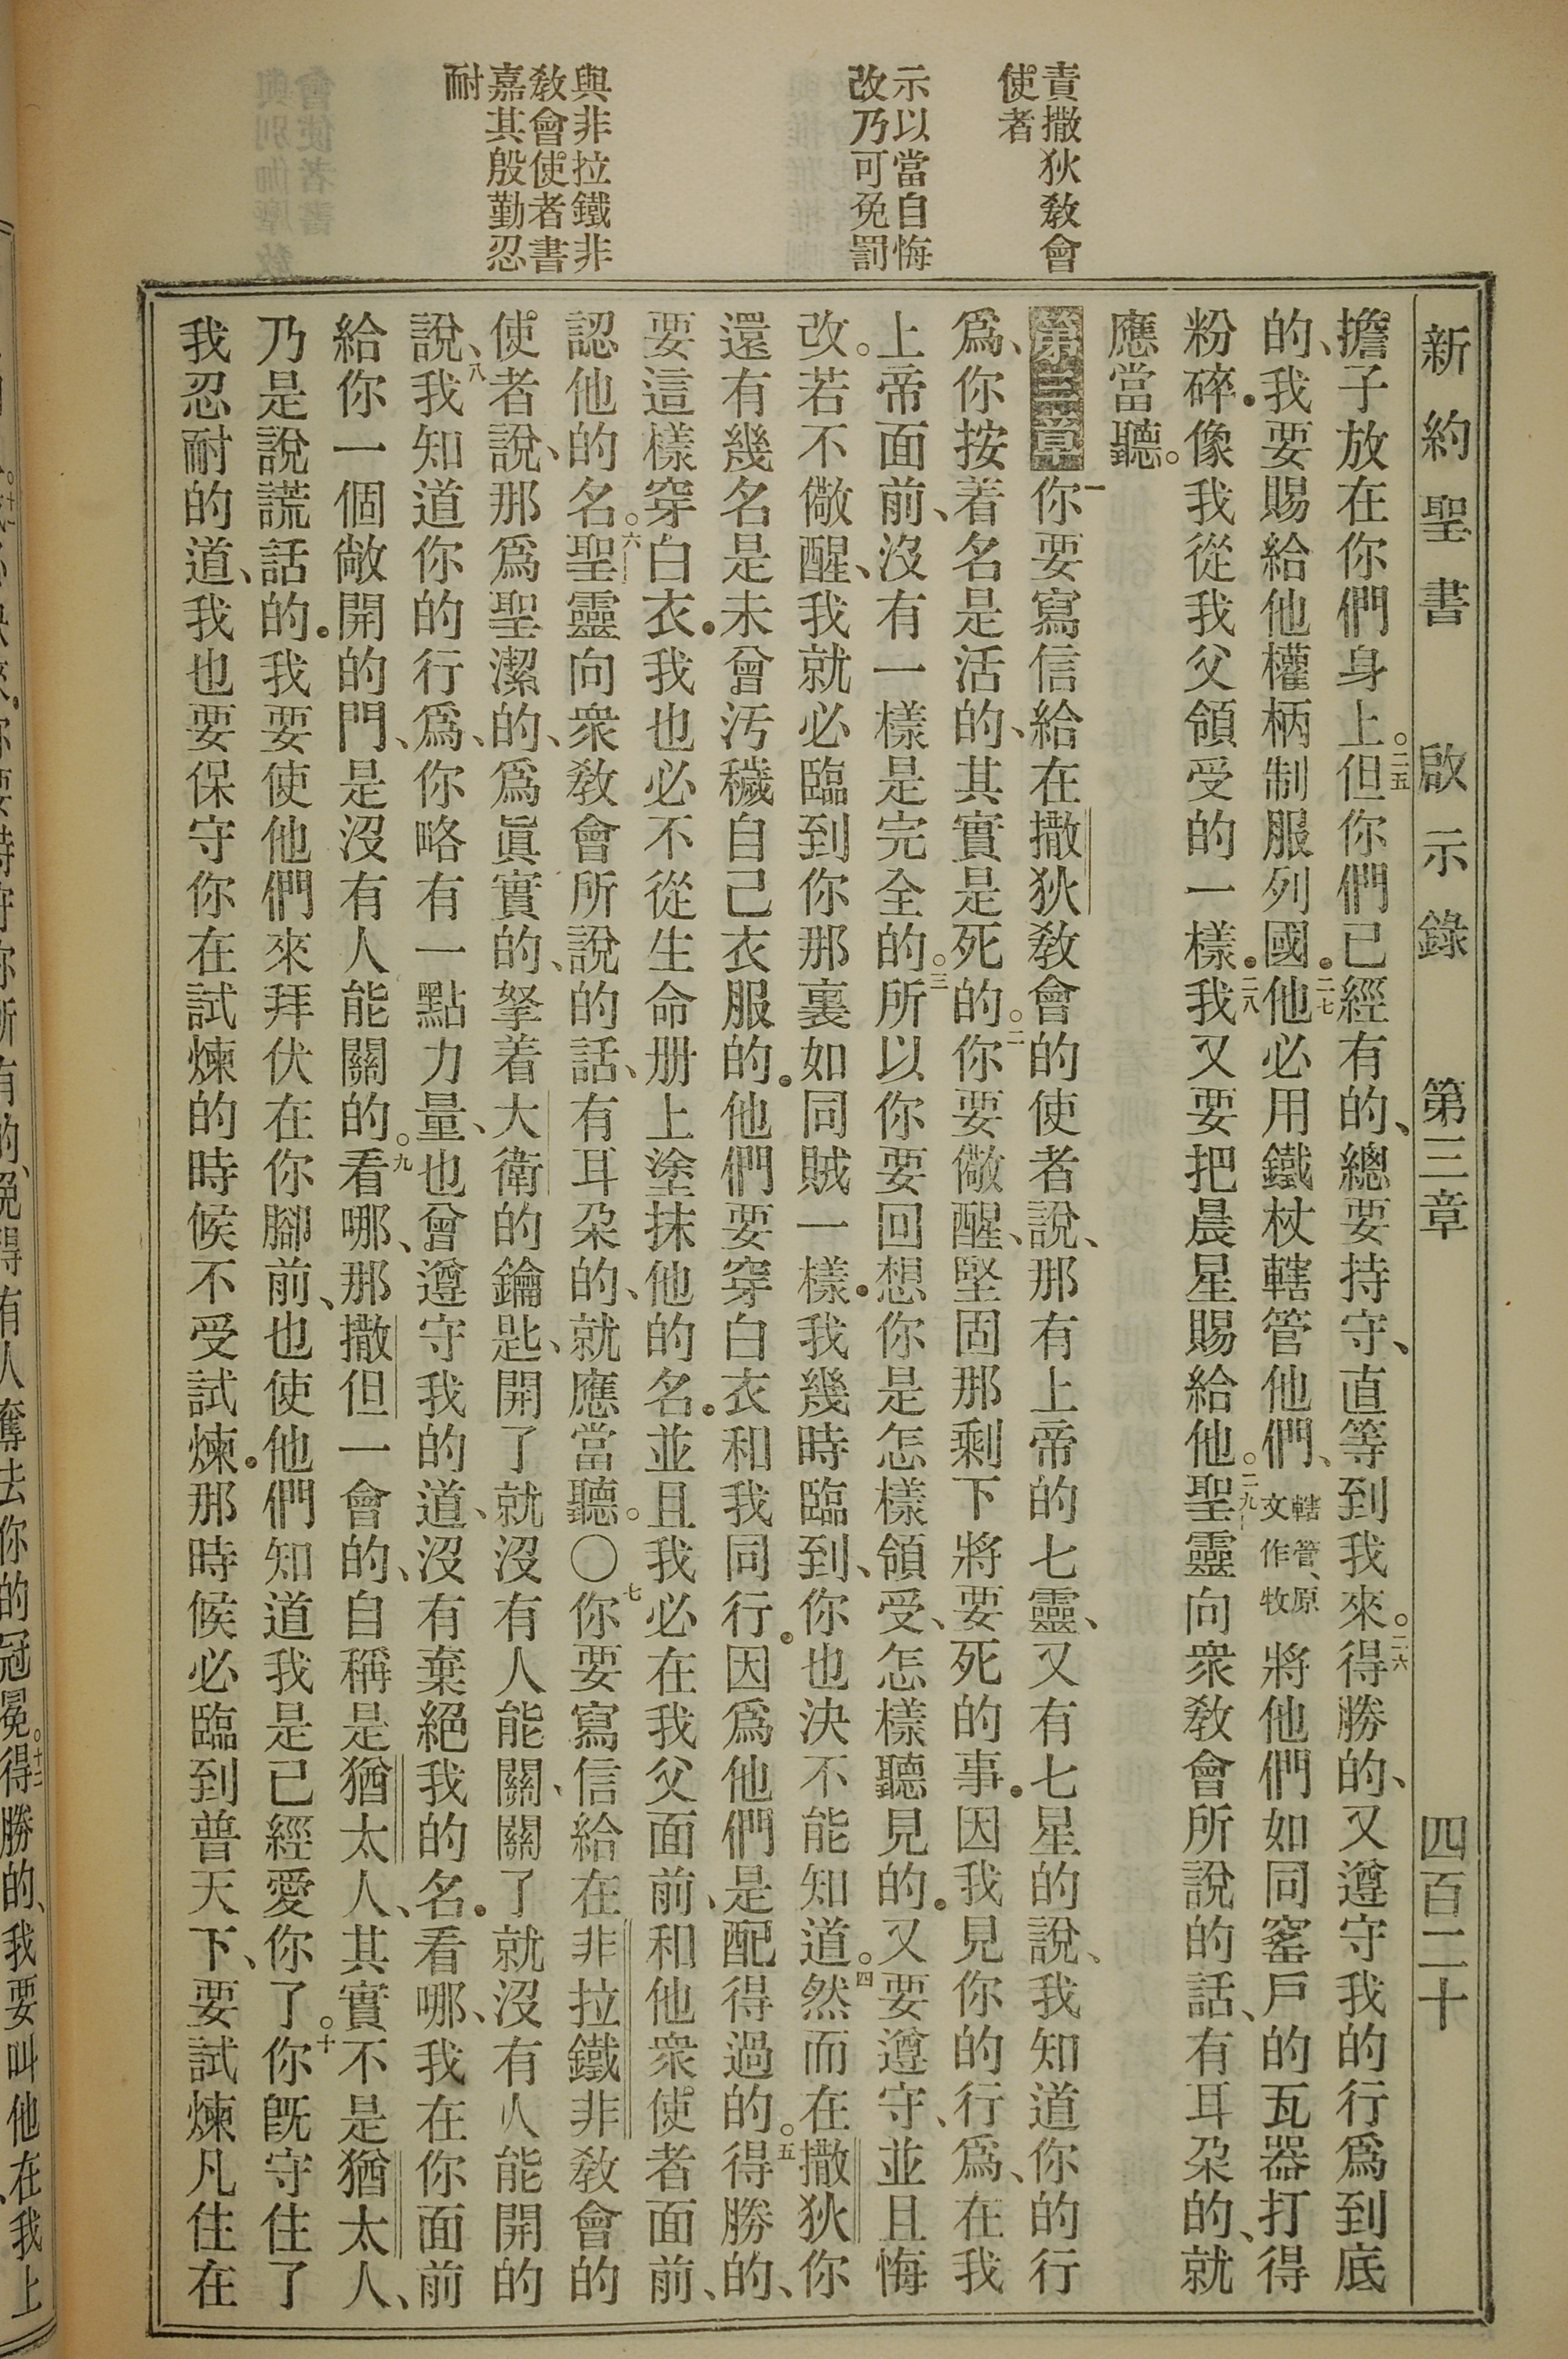 新約聖書　啟示錄　第三章　四百二十
責撒狄敎會
使者
示以當自悔
改乃可免罰
與非拉鐵非
敎會使者書
嘉其殷勤忍
耐
擔子放在你們身上。二五但你們已經有的、總要持守、直等到我來。二六得勝的、又遵守我的行爲到底
的、我要賜給他權柄制服列國．二七他必用鐵杖轄管他們、轄管、原文作牧將他們如同窰戶的瓦器打得
粉碎．像我從我父領受的一樣．二八我又要把晨星賜給他。二九聖靈向衆敎會所說的話、有耳朶的、就
應當聽。
第三章一你要寫信給在撒狄敎會的使者說、那有上帝的七靈、又有七星的說、我知道你的行
爲、你按着名是活的、其實是死的。二你要儆醒、堅固那剩下將要死的事．因我見你的行爲、在我
上帝面前、沒有一樣是完全的。三所以你要回想你是怎樣領受、怎樣聽見的．又要遵守、並且悔
改。若不儆醒、我就必臨到你那裏如同賊一樣．我幾時臨到、你也決不能知道。四然而在撒狄你
還有幾名是未曾汚穢自己衣服的．他們要穿白衣和我同行．因爲他們是配得過的。五得勝的、
要這樣穿白衣．我也必不從生命册上塗抹他的名．並且我必在我父面前、和他衆使者面前、
認他的名。六聖靈向衆敎會所說的話、有耳朶的、就應當聽。〇七你要寫信給在非拉鐵非敎會的
使者說、那爲聖潔的、爲眞實的、拏着大衛的鑰匙、開了就沒有人能關、關了就沒有人能開的
說、八我知道你的行爲、你略有一點力量、也曾遵守我的道、沒有棄絕我的名．看哪、我在你面前
給你一個敞開的門、是沒有人能關的。九看哪、那撒但一會的、自稱是猶太人、其實不是猶太人、
乃是說謊話的．我要使他們來拜伏在你腳前、也使他們知道我是已經愛你了。十你旣守住了
我忍耐的道、我也要保守你在試煉的時候不受試煉．那時候必臨到普天下、要試煉凡住在